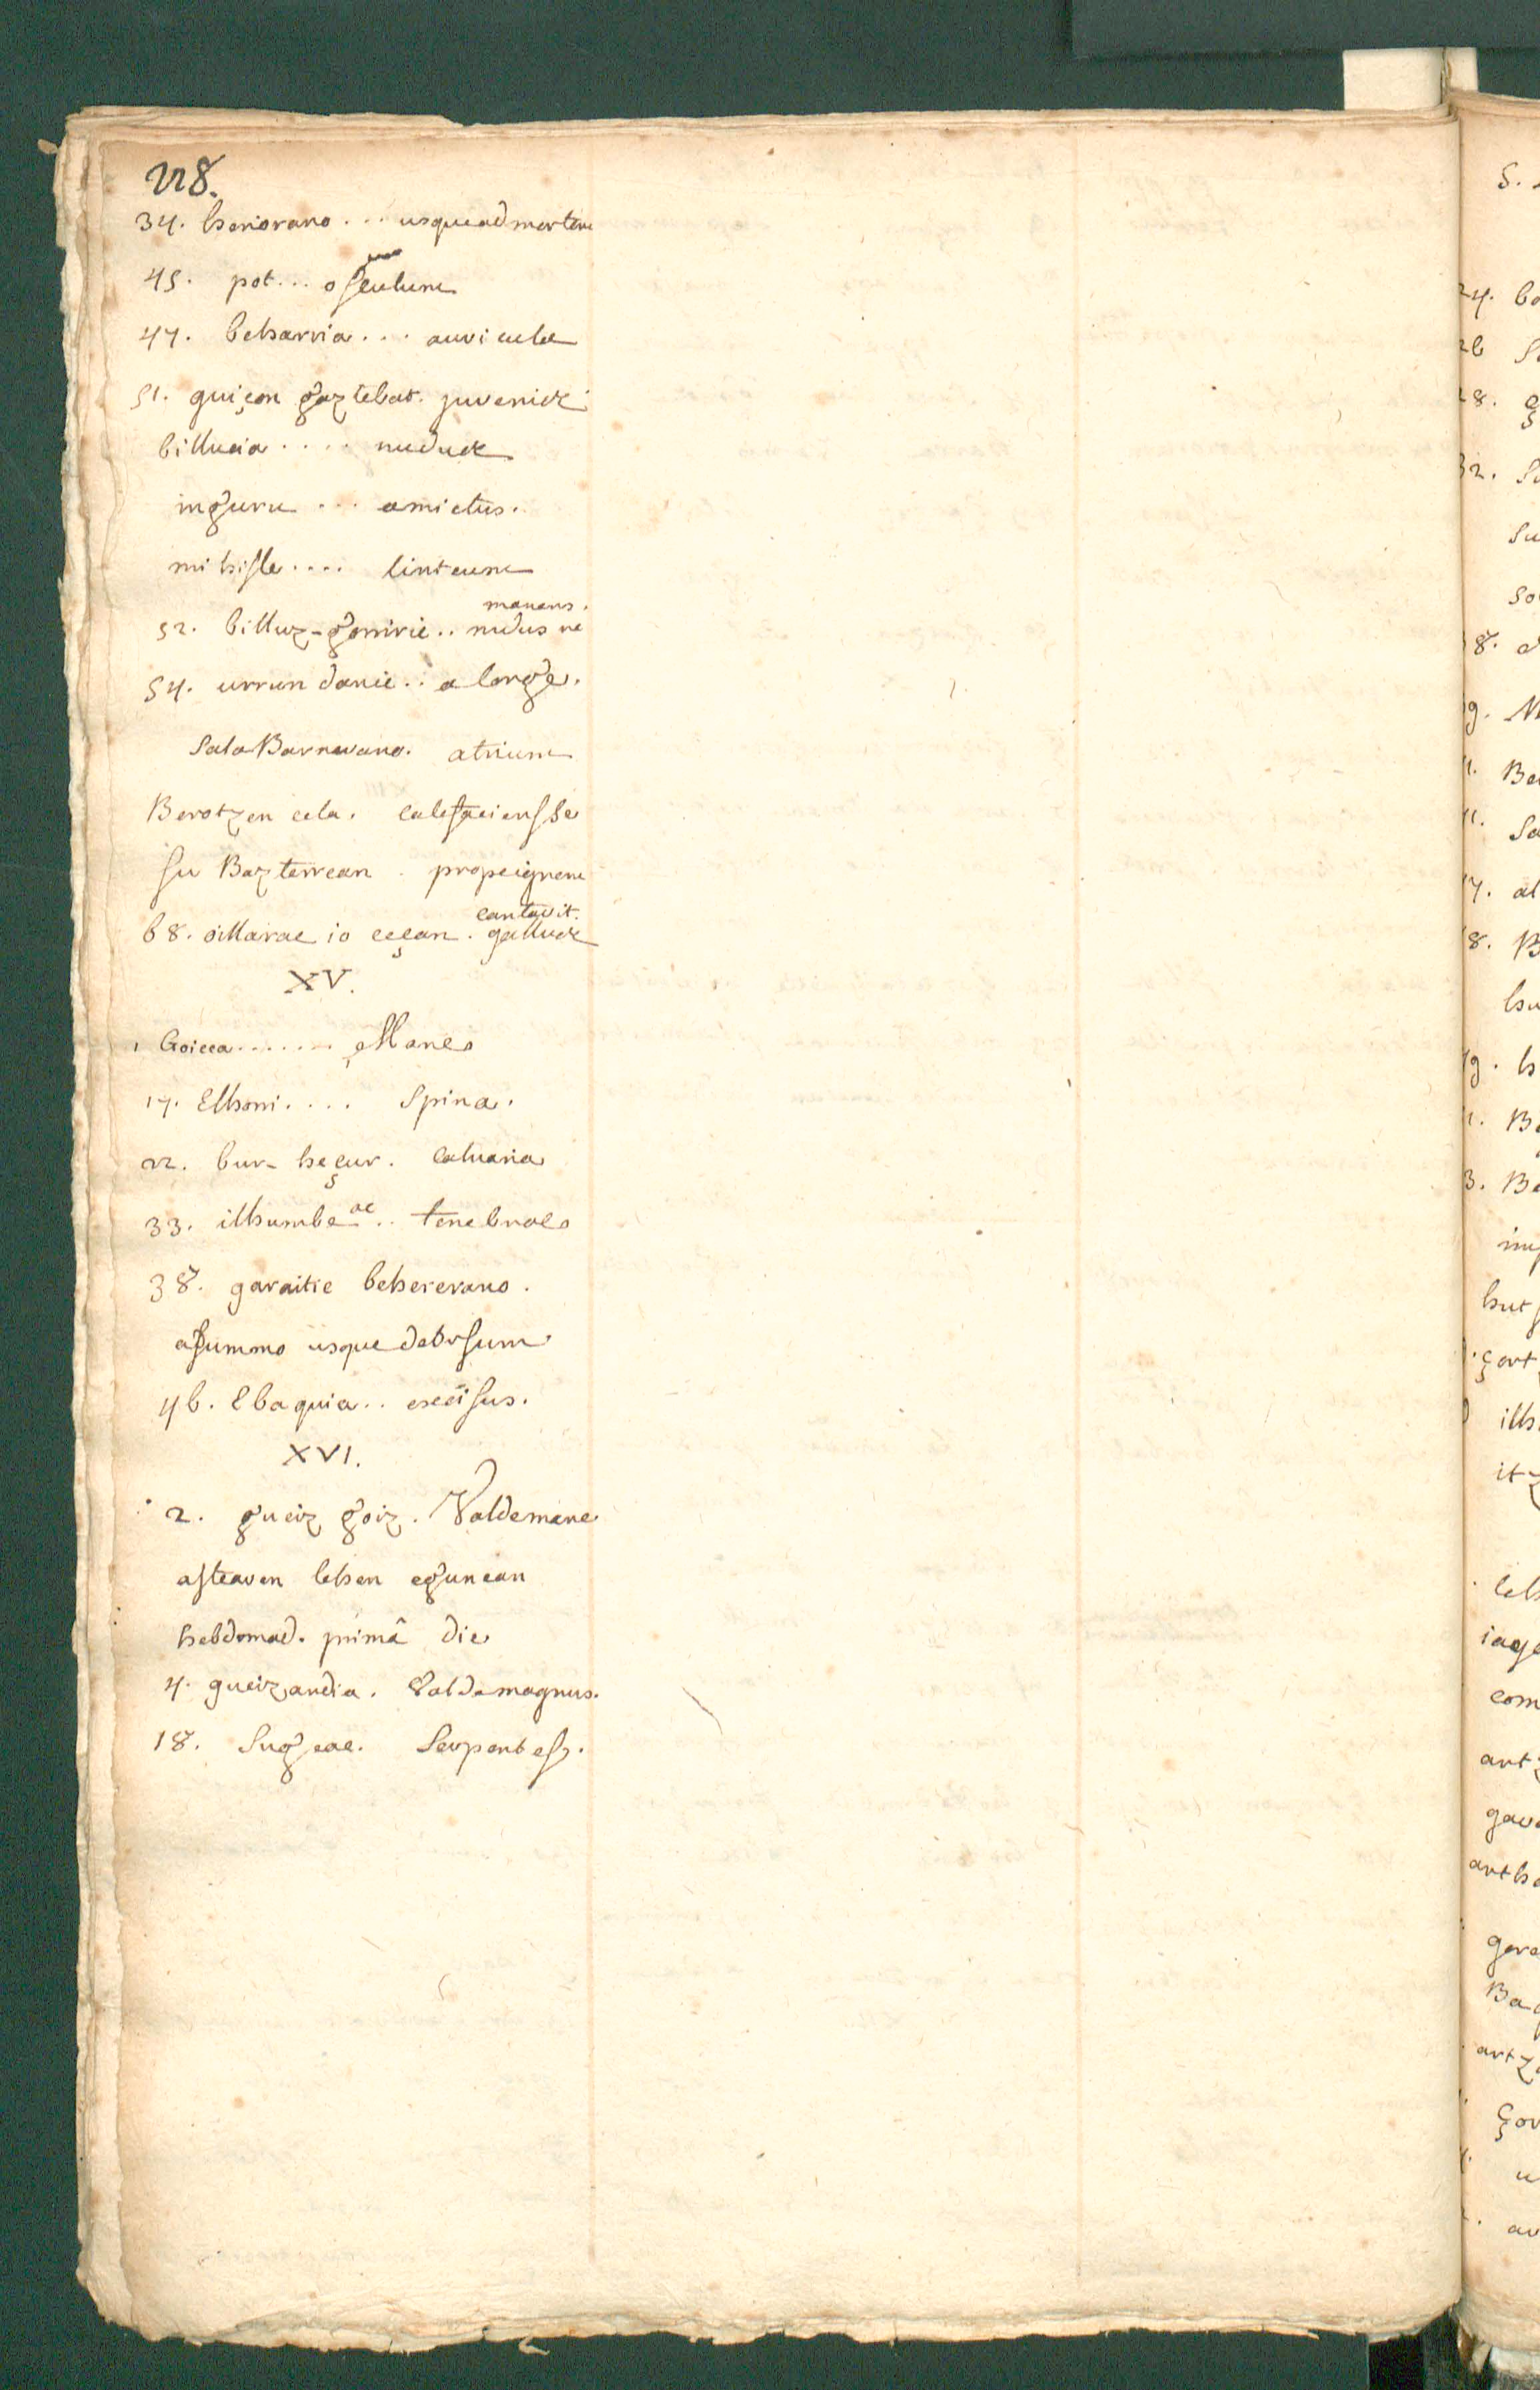 228.
34. heriorano ... usque ad mortem
45. pot... osculum
47. beharria ... auricula
51. guiçon gaztebat. juvenis
billucia .... nudus
inguru ... amictus.
mihisse .... linteum
manens.
52. billuz-gorriric .. nudus re
54. urrundanic .. a longe.
Sala Barnerano. atrium
Berotzen cela. calefaciens se
su Bazterrean . prope ignem
cantavit.
68. oillarac io ceçan. gallus
XV.
1 Goicea ....... Mane
17. Elhorri .... Spina.
22. bur-heçur. calvaria
33. ilhumbeac .. tenebrae
38. garaitic behererano.
a summo usque deorsum
46. Ebaquia .. excisus.
XVI.
2. gueiz goiz. Valde mane
astearen lehen egunean
hebdomad. primâ die
4. gueizandia. Valde magnus.
18. Sugeac. Serpentes.